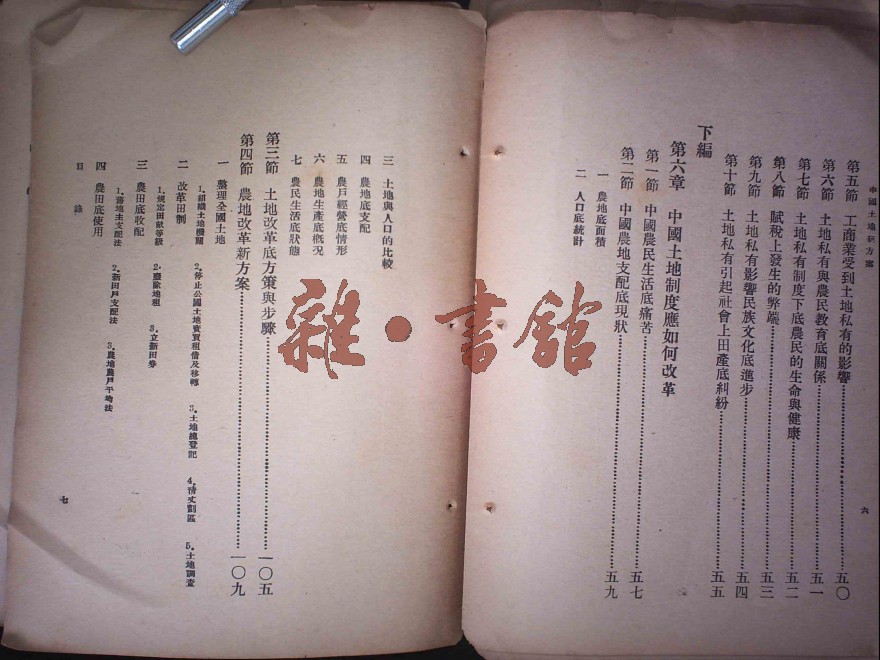 中國土地新方案
第五節 工商業受到土地私有的影響 五〇
第六節 土地私有與農民教育底關係 五一
第七節 土地私有制度下底農民的生命與健康 五二
第八節 賦稅上發生的弊端 五三
第九節 土地私有影響民族文化底進步 五四
第十節 土地私有引起社會上田產底糾紛 五五
下編
第六章 中國土地制度應如何改革
第一節 中國農民生活底痛苦 五七
第二節 中國農地支配底現狀 五九
一 農地底面積
二 人口底統計
六
三 土地與人口的比較
四 農地底支配
五 農戶經營底情形
六 農地生產底概況
七 農民生活底狀態
第三節 土地改革底方策與步驟 一〇五
第四節 農地改革新方案 一〇九
一 整理全國土地
1.組織土地機關 2.停止公國土地賣買租借及移轉 3.土地總登記 4.清丈劃區 5.土地調查
二 改革田制
1.規定田畝等級 2.廢除地租 3.立新田券
三 農田底收配
1.舊地主支配法 2.新田戶支配法 3.農地農戶平均法
四 農田底使用
目錄
七
雜·書館